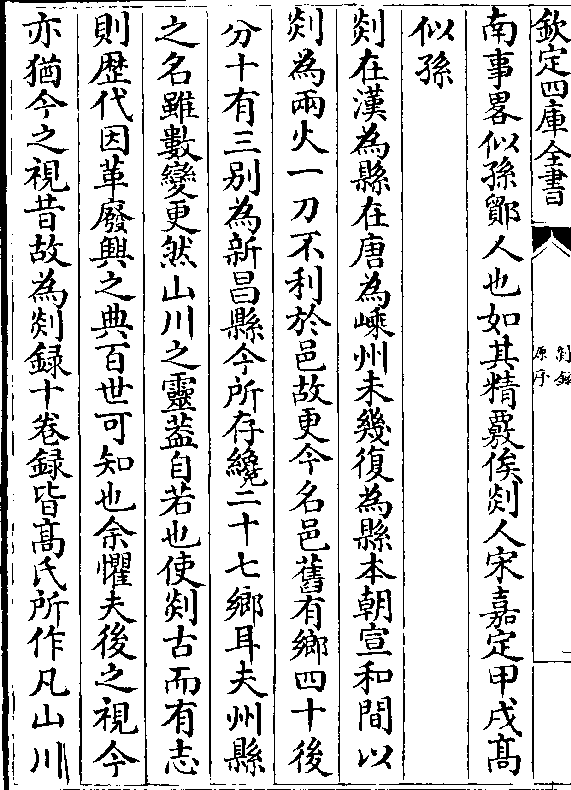 欽定四庫全書
剡錄
原序
二
南事畧似孫鄮人也如其精覈俟剡人宋嘉定甲戌髙
似孫
剡在漢為縣在唐為嵊州未幾復為縣本朝宣和間以
剡為兩火一刀不利於邑故更今名邑舊有鄉四十後
分十有三别為新昌縣今所存纔二十七鄉耳夫州縣
之名雖數變更然山川之靈葢自若也使剡古而有志
則歴代因革廢興之典百世可知也余懼夫後之視今
亦猶今之視昔故為剡録十卷録皆髙氏所作凡山川